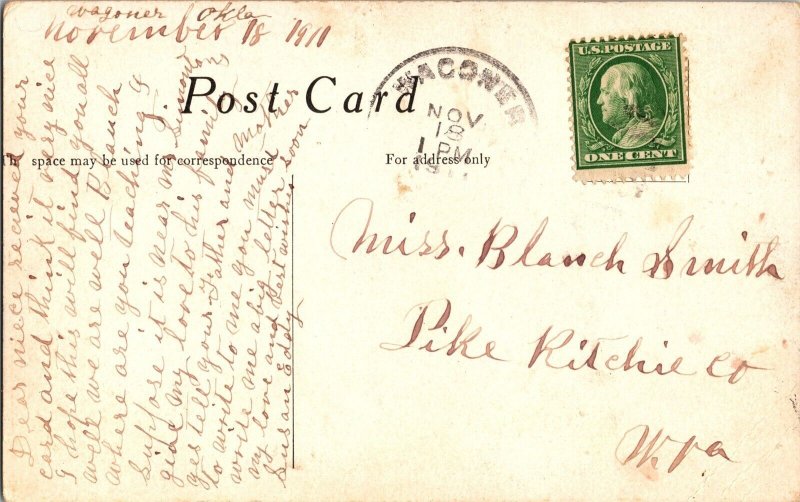 Wagoner Okla
November 18 1911
Post Card
space may be used for correspondence
For address only
WAGONER
NOV
18
1 PM
U.S. POSTAGE
ONE CENT
Miss. Blanch Smith
Pike Ritchie co
W. va
Dear niece recieved your
card and think it very nice
I hope this will find you all
well we are well Blanch
where are you teaching I
suppose it is near mr
my love to his family
tell your Father and Mother
to write to me you must
write me a big letter soon
my love and best wishes
Susan Eddy